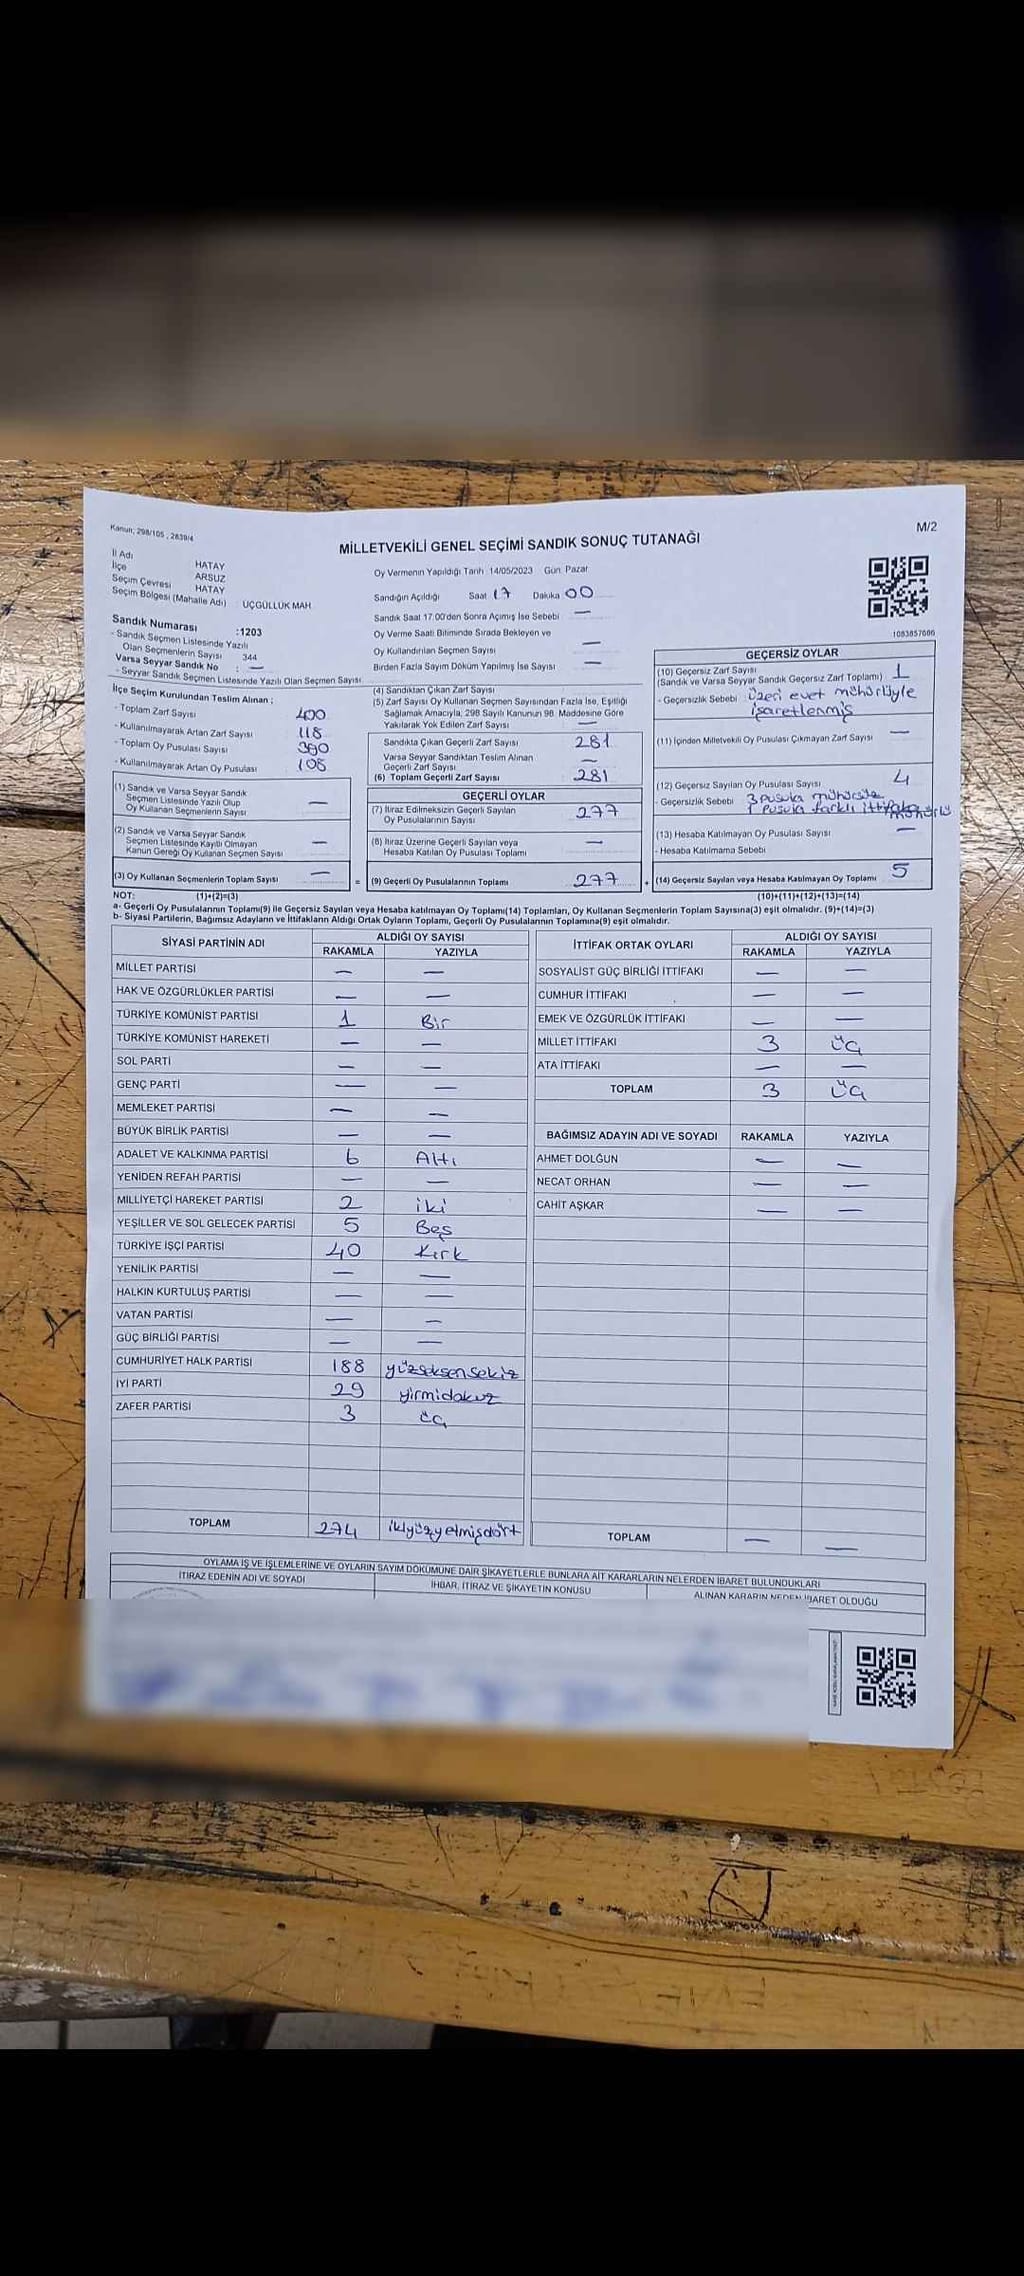 Kanun; 298/105 , 2839/4
M/2
MİLLETVEKİLİ GENEL SEÇİMİ SANDIK SONUÇ TUTANAĞI
İl Adı HATAY
İlçe ARSUZ
Seçim Çevresi HATAY
Seçim Bölgesi (Mahalle Adı) ÜÇGÜLLÜK MAH
Sandık Numarası :1203
- Sandık Seçmen Listesinde Yazılı
Olan Seçmenlerin Sayısı 344
Varsa Seyyar Sandık No : —
- Seyyar Sandık Seçmen Listesinde Yazılı Olan Seçmen Sayısı
Oy Vermenin Yapıldığı Tarih 14/05/2023 Gün: Pazar
Sandığın Açıldığı Saat 17 Dakika 00
Sandık Saat 17.00'den Sonra Açılmış İse Sebebi —
Oy Verme Saati Bitiminde Sırada Bekleyen ve
Oy Kullandırılan Seçmen Sayısı —
Birden Fazla Sayım Döküm Yapılmış İse Sayısı —
1083857686
İlçe Seçim Kurulundan Teslim Alınan ;
- Toplam Zarf Sayısı 400
- Kullanılmayarak Artan Zarf Sayısı 118
- Toplam Oy Pusulası Sayısı 390
- Kullanılmayarak Artan Oy Pusulası 108
(1) Sandık ve Varsa Seyyar Sandık
Seçmen Listesinde Yazılı Olup
Oy Kullanan Seçmenlerin Sayısı —
(2) Sandık ve Varsa Seyyar Sandık
Seçmen Listesinde Kayıtlı Olmayan
Kanun Gereği Oy Kullanan Seçmen Sayısı —
(3) Oy Kullanan Seçmenlerin Toplam Sayısı —
(4) Sandıktan Çıkan Zarf Sayısı
(5) Zarf Sayısı Oy Kullanan Seçmen Sayısından Fazla İse, Eşitliği
Sağlamak Amacıyla, 298 Sayılı Kanunun 98. Maddesine Göre
Yakılarak Yok Edilen Zarf Sayısı —
Sandıkta Çıkan Geçerli Zarf Sayısı 281
Varsa Seyyar Sandıktan Teslim Alınan
Geçerli Zarf Sayısı —
(6) Toplam Geçerli Zarf Sayısı 281
GEÇERLİ OYLAR
(7) İtiraz Edilmeksizin Geçerli Sayılan
Oy Pusulalarının Sayısı 277
(8) İtiraz Üzerine Geçerli Sayılan veya
Hesaba Katılan Oy Pusulası Toplamı —
= (9) Geçerli Oy Pusulalarının Toplamı 277
GEÇERSİZ OYLAR
(10) Geçersiz Zarf Sayısı
(Sandık ve Varsa Seyyar Sandık Geçersiz Zarf Toplamı) 1
- Geçersizlik Sebebi üzeri evet mühürüyle
işaretlenmiş
(11) İçinden Milletvekili Oy Pusulası Çıkmayan Zarf Sayısı —
(12) Geçersiz Sayılan Oy Pusulası Sayısı 4
- Geçersizlik Sebebi 3 pusula mühürsüz
1 pusula farklı ittifaka mühürlü
(13) Hesaba Katılmayan Oy Pusulası Sayısı —
- Hesaba Katılmama Sebebi
+ (14) Geçersiz Sayılan veya Hesaba Katılmayan Oy Toplamı 5
NOT: (1)+(2)=(3)
(10)+(11)+(12)+(13)=(14)
a- Geçerli Oy Pusulalarının Toplamı(9) ile Geçersiz Sayılan veya Hesaba katılmayan Oy Toplamı(14) Toplamları, Oy Kullanan Seçmenlerin Toplam Sayısına(3) eşit olmalıdır. (9)+(14)=(3)
b- Siyasi Partilerin, Bağımsız Adayların ve İttifakların Aldığı Ortak Oyların Toplamı, Geçerli Oy Pusulalarının Toplamına(9) eşit olmalıdır.
SİYASİ PARTİNİN ADI ALDIĞI OY SAYISI
RAKAMLA YAZIYLA
MİLLET PARTİSİ — —
HAK VE ÖZGÜRLÜKLER PARTİSİ — —
TÜRKİYE KOMÜNİST PARTİSİ 1 Bir
TÜRKİYE KOMÜNİST HAREKETİ — —
SOL PARTİ — —
GENÇ PARTİ — —
MEMLEKET PARTİSİ — —
BÜYÜK BİRLİK PARTİSİ — —
ADALET VE KALKINMA PARTİSİ 6 Altı
YENİDEN REFAH PARTİSİ — —
MİLLİYETÇİ HAREKET PARTİSİ 2 iki
YEŞİLLER VE SOL GELECEK PARTİSİ 5 Beş
TÜRKİYE İŞÇİ PARTİSİ 40 Kırk
YENİLİK PARTİSİ — —
HALKIN KURTULUŞ PARTİSİ — —
VATAN PARTİSİ — —
GÜÇ BİRLİĞİ PARTİSİ — —
CUMHURİYET HALK PARTİSİ 188 yüzseksensekiz
İYİ PARTİ 29 yirmidokuz
ZAFER PARTİSİ 3 üç
TOPLAM 274 ikiyüzyetmişdört
İTTİFAK ORTAK OYLARI ALDIĞI OY SAYISI
RAKAMLA YAZIYLA
SOSYALİST GÜÇ BİRLİĞİ İTTİFAKI — —
CUMHUR İTTİFAKI — —
EMEK VE ÖZGÜRLÜK İTTİFAKI — —
MİLLET İTTİFAKI 3 üç
ATA İTTİFAKI — —
TOPLAM 3 üç
BAĞIMSIZ ADAYIN ADI VE SOYADI RAKAMLA YAZIYLA
AHMET DOLĞUN — —
NECAT ORHAN — —
CAHİT AŞKAR — —
TOPLAM — —
OYLAMA İŞ VE İŞLEMLERİNE VE OYLARIN SAYIM DÖKÜMÜNE DAİR ŞİKAYETLERLE BUNLARA AİT KARARLARIN NELERDEN İBARET BULUNDUKLARI
İTİRAZ EDENİN ADI VE SOYADI İHBAR, İTİRAZ VE ŞİKAYETİN KONUSU ALINAN KARARIN NEDEN İBARET OLDUĞU